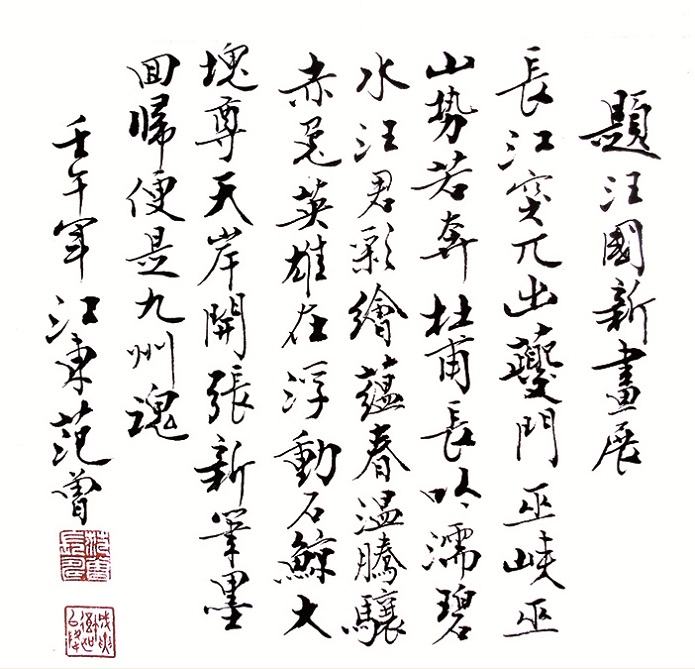 題汪國新畫展
長江突兀出夔門巫峽巫
山勢若奔杜甫長吟濡碧
水汪君彩繪蘊春温騰驤
赤兔英雄在浮動石鯨大
塊尊天岸開張新筆墨
回歸便是九州魂
壬午年江東范曾